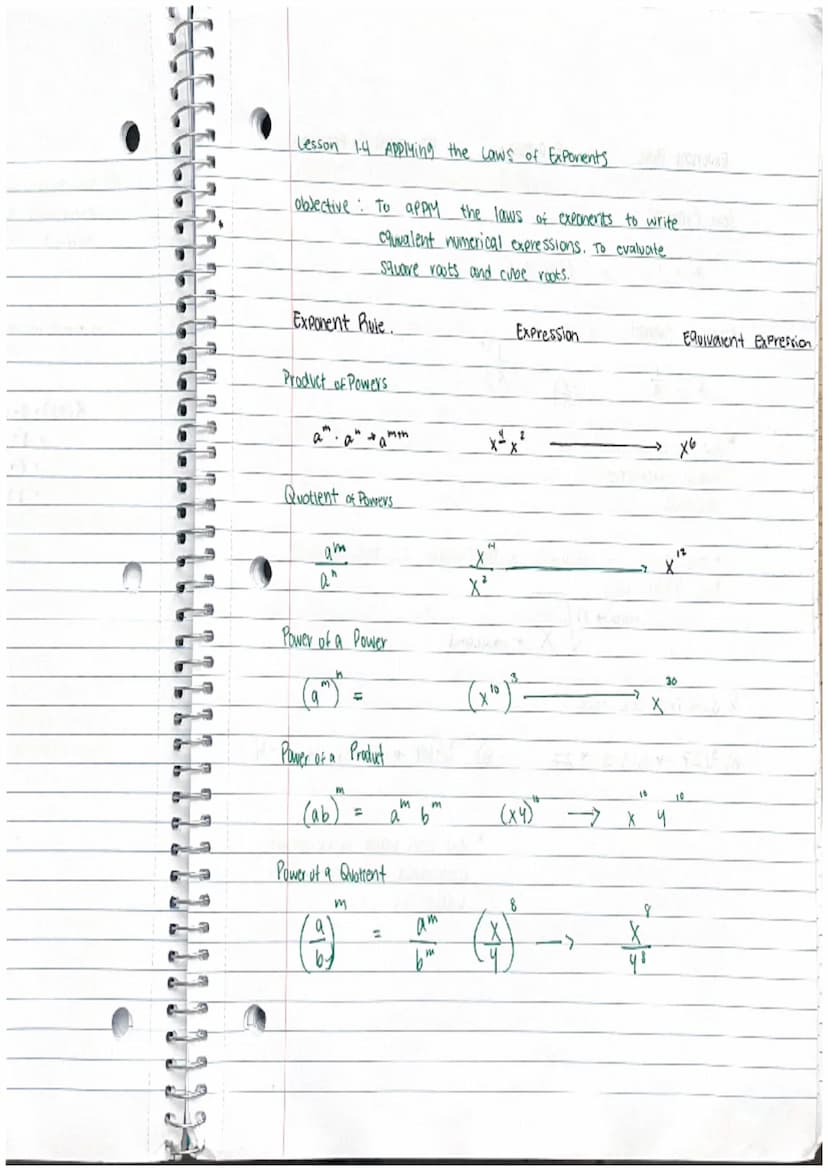 Lesson 1.4 Applying the Laws of Exponents
Objective: To apply the laws of exponents to write
equivalent numerical expressions. To evaluate
square roots and cube roots.
Exponent Rule. Expression Equivalent Expression
Product of Powers
a^m · a^n → a^m+n x^4 · x^2 → x^6
Quotient of Powers
a^m / a^n x^14 / x^2 → x^12
Power of a Power
(a^m)^n = (x^10)^3 → x^30
Power of a Product
(ab)^m = a^m b^m (xy)^10 → x^10 y^10
Power of a Quotient
(a/b)^m = a^m / b^m (x/y)^8 → x^8 / y^8